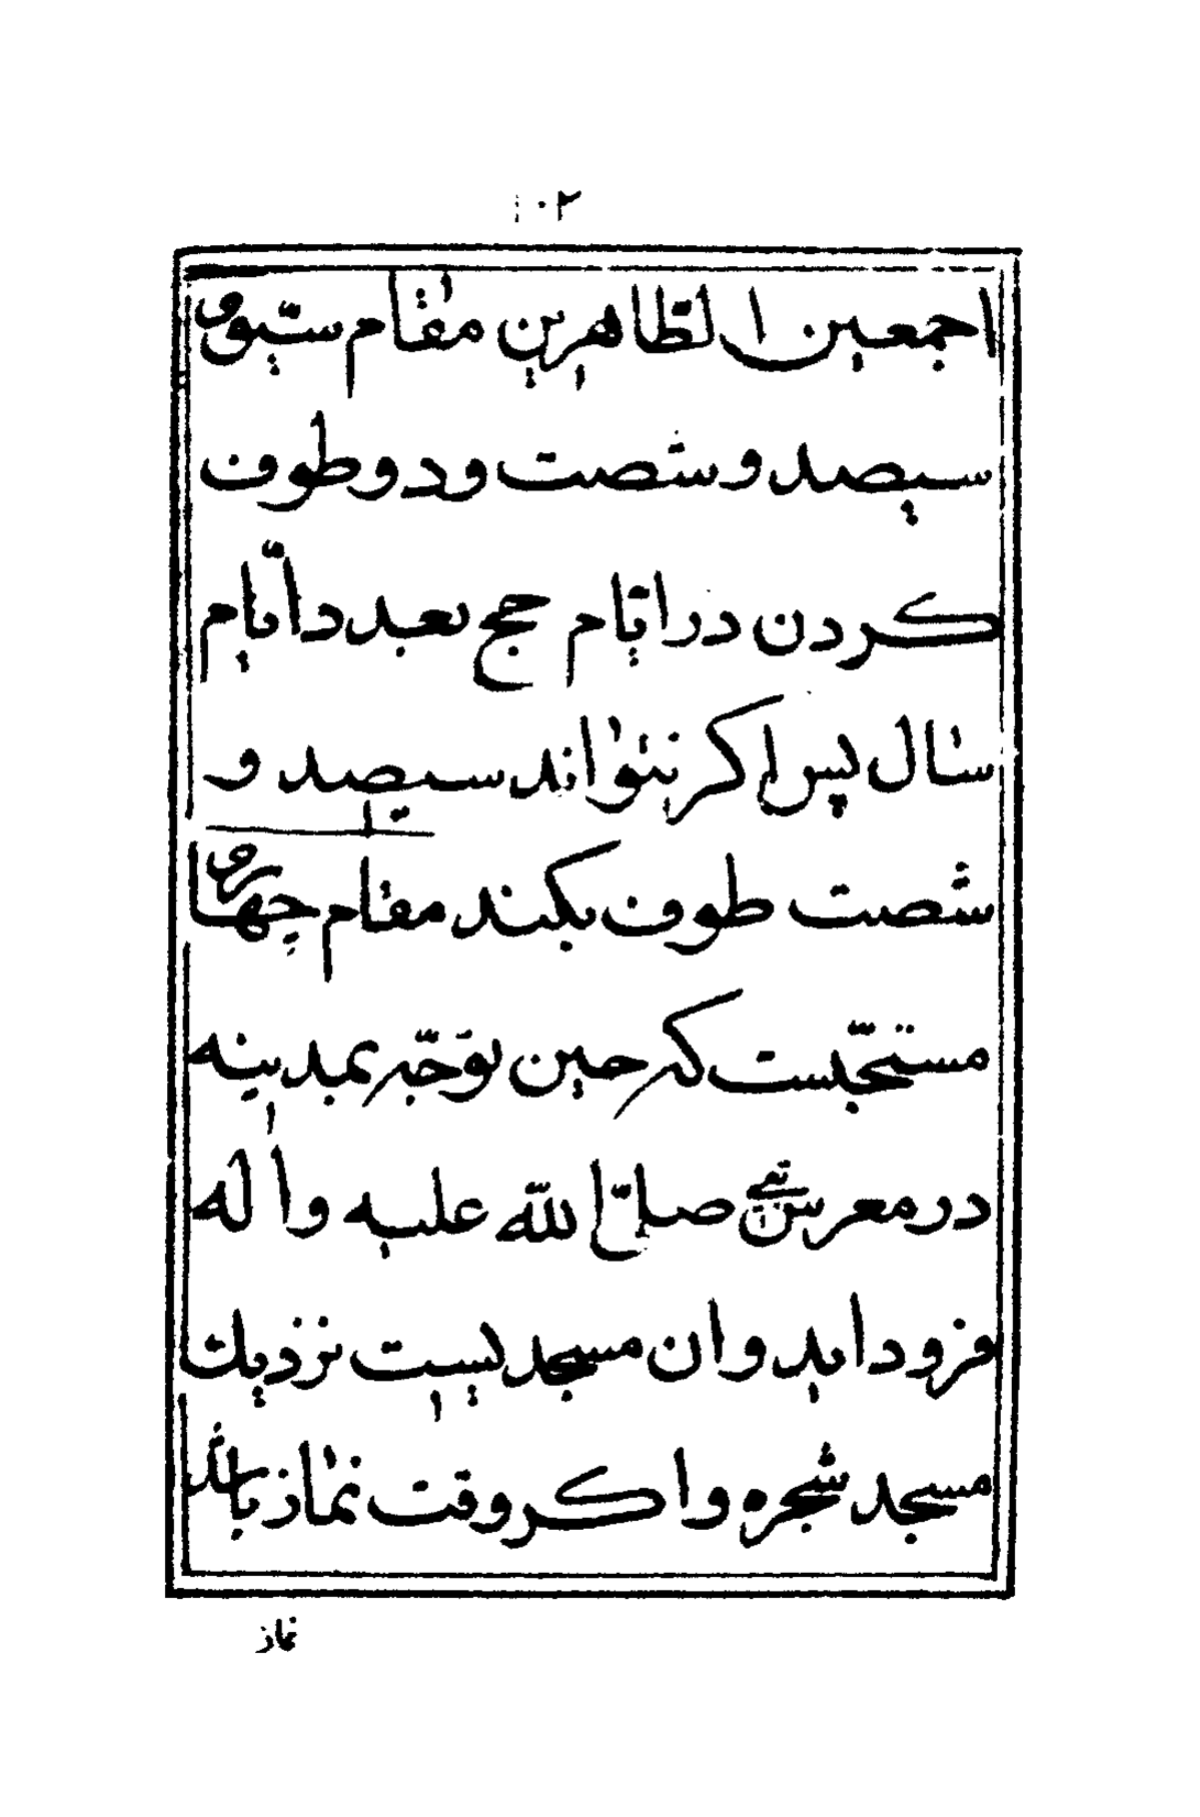 ۱۰۲
اجمعین الطّاهرین مقام سیّوم
سیصد و شصت و دو طوف
کردن در ایّام حج بعدد ایّام
سال پس اکر نتواند سیصد و
شصت طوف بکند مقام چهارم
مستحبّست که حین توجّه بمدینه
در معرس نبی صلّی اللّه علیه واله
فرود اید وان مسجدیست نزدیك
مسجد شجره واکر وقت نماز باشد
نماز